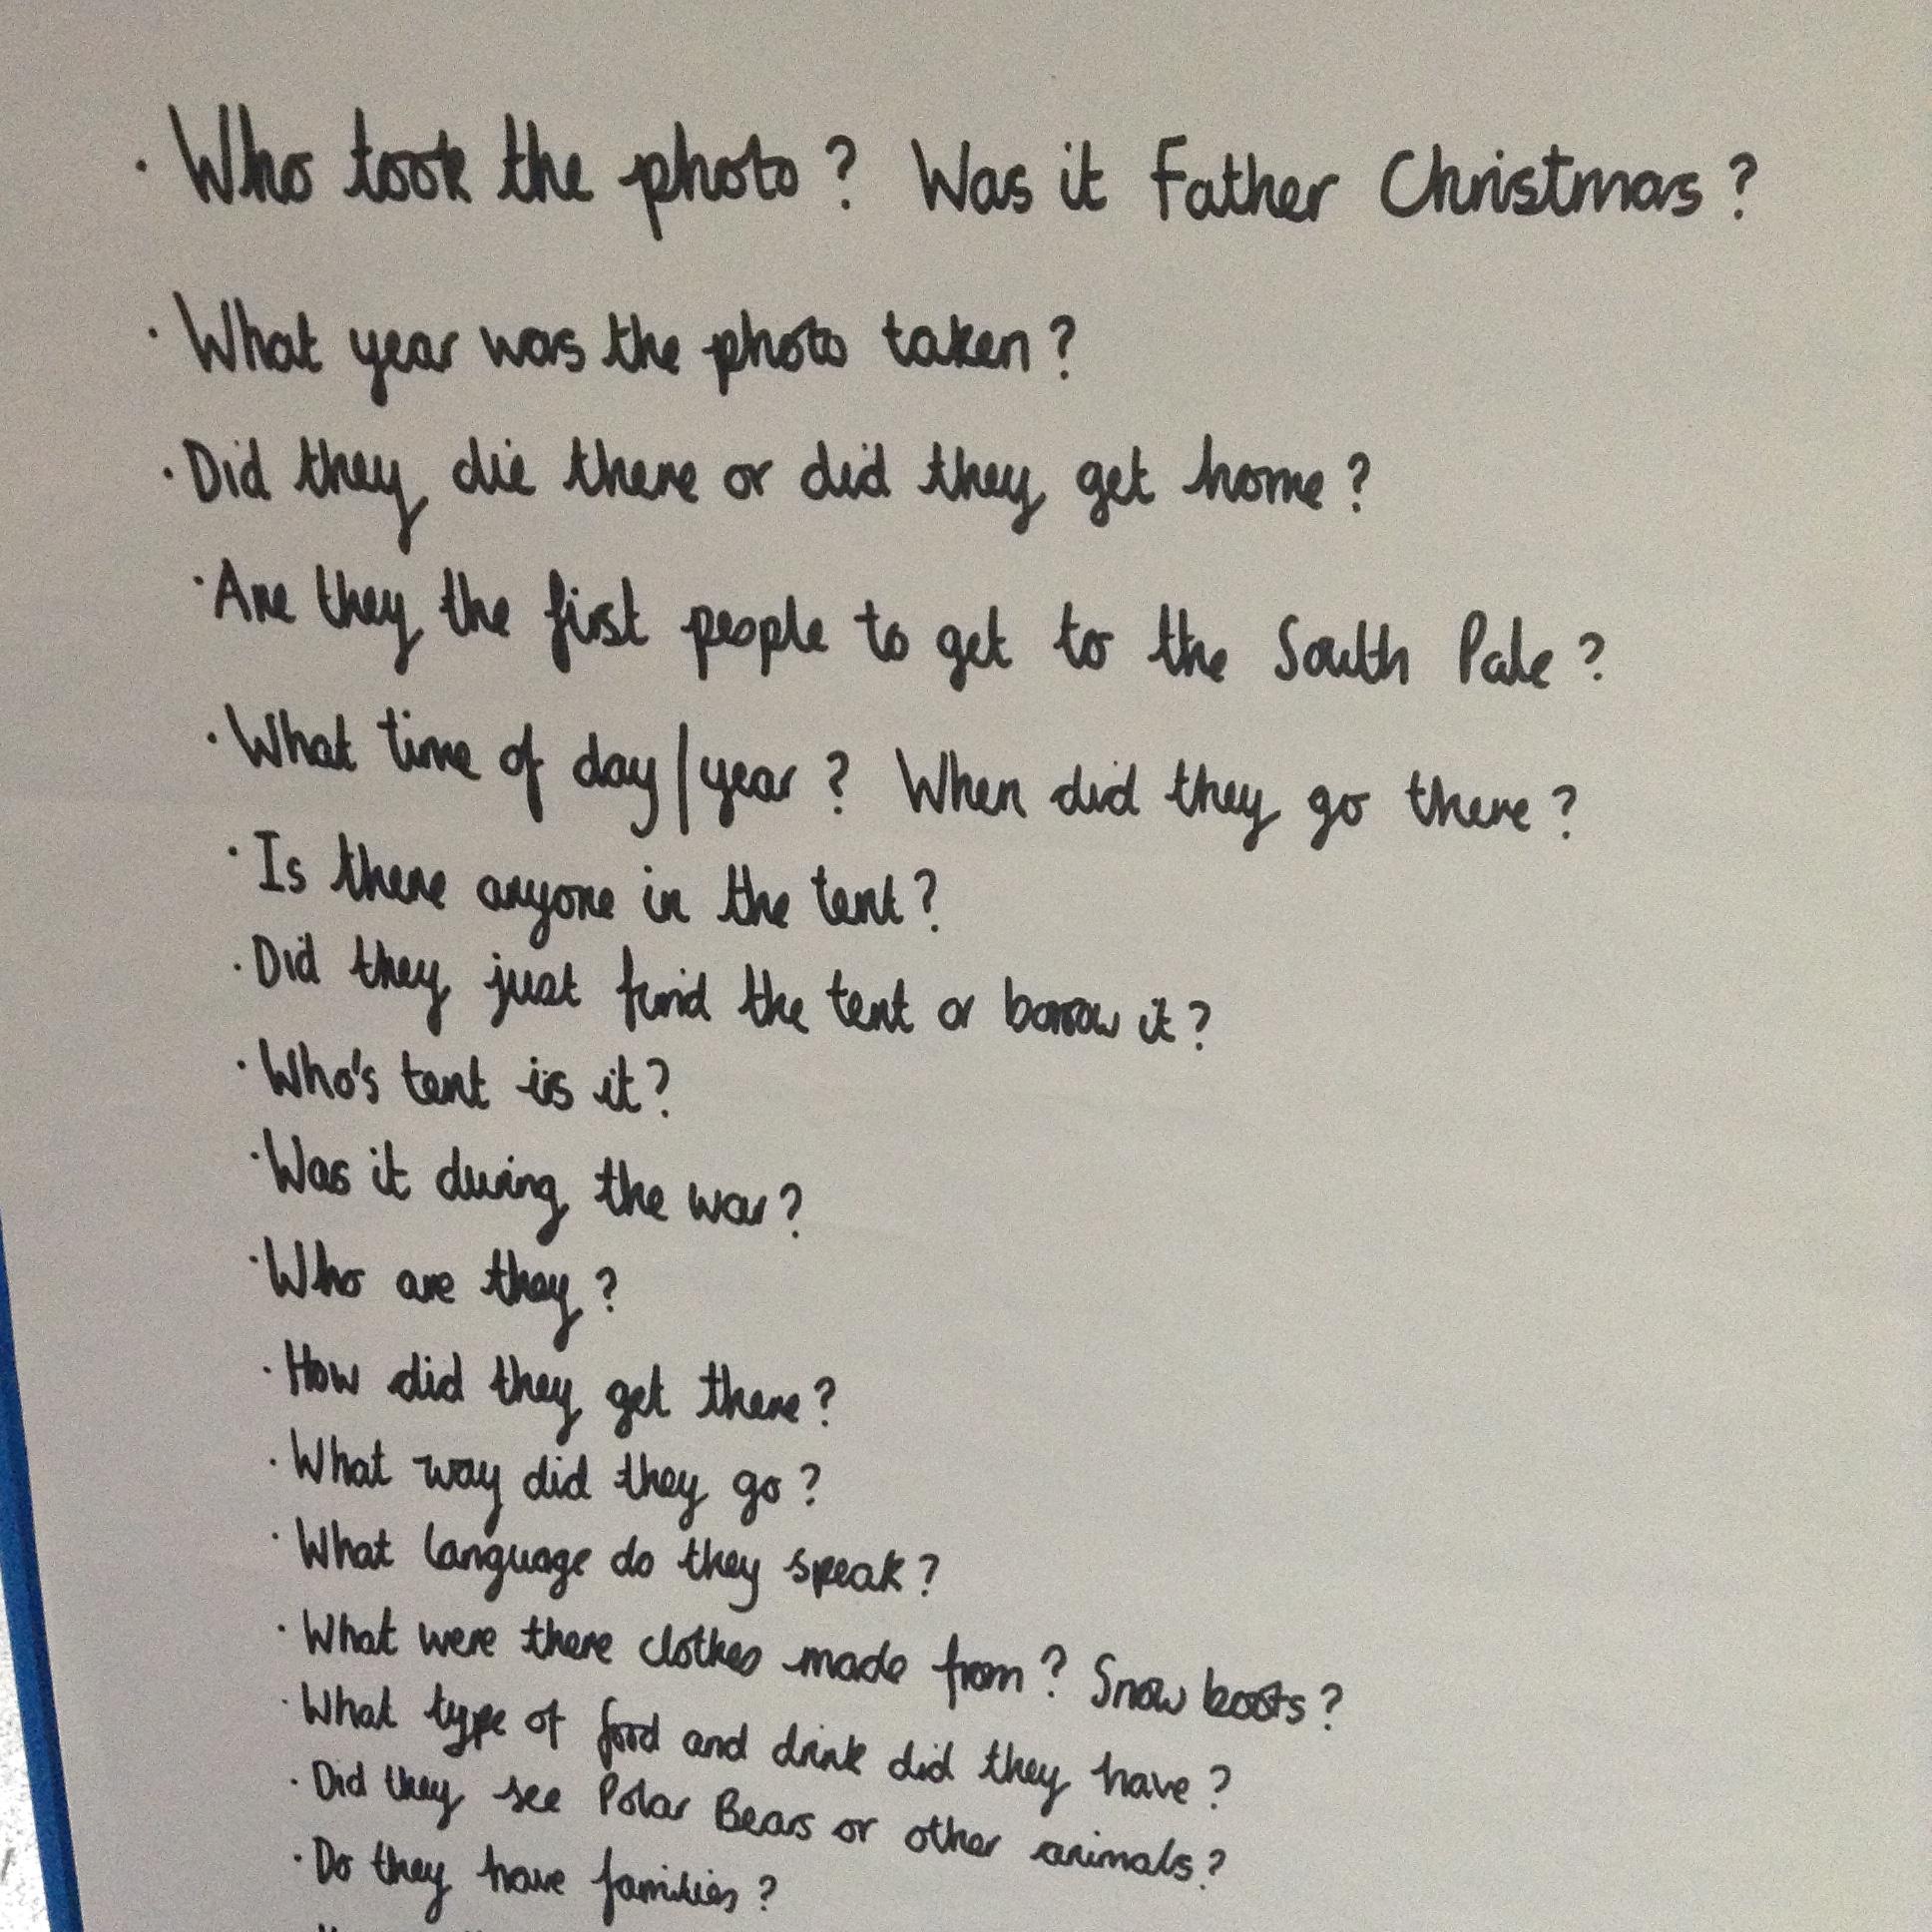 · Who took the photo? Was it Father Christmas?
· What year was the photo taken?
· Did they die there or did they get home?
· Are they the first people to get to the South Pole?
· What time of day/year? When did they go there?
· Is there anyone in the tent?
· Did they just find the tent or borrow it?
· Who's tent is it?
· Was it during the war?
· Who are they?
· How did they get there?
· What way did they go?
· What language do they speak?
· What were there clothes made from? Snow boots?
· What type of food and drink did they have?
· Did they see Polar Bears or other animals?
· Do they have families?